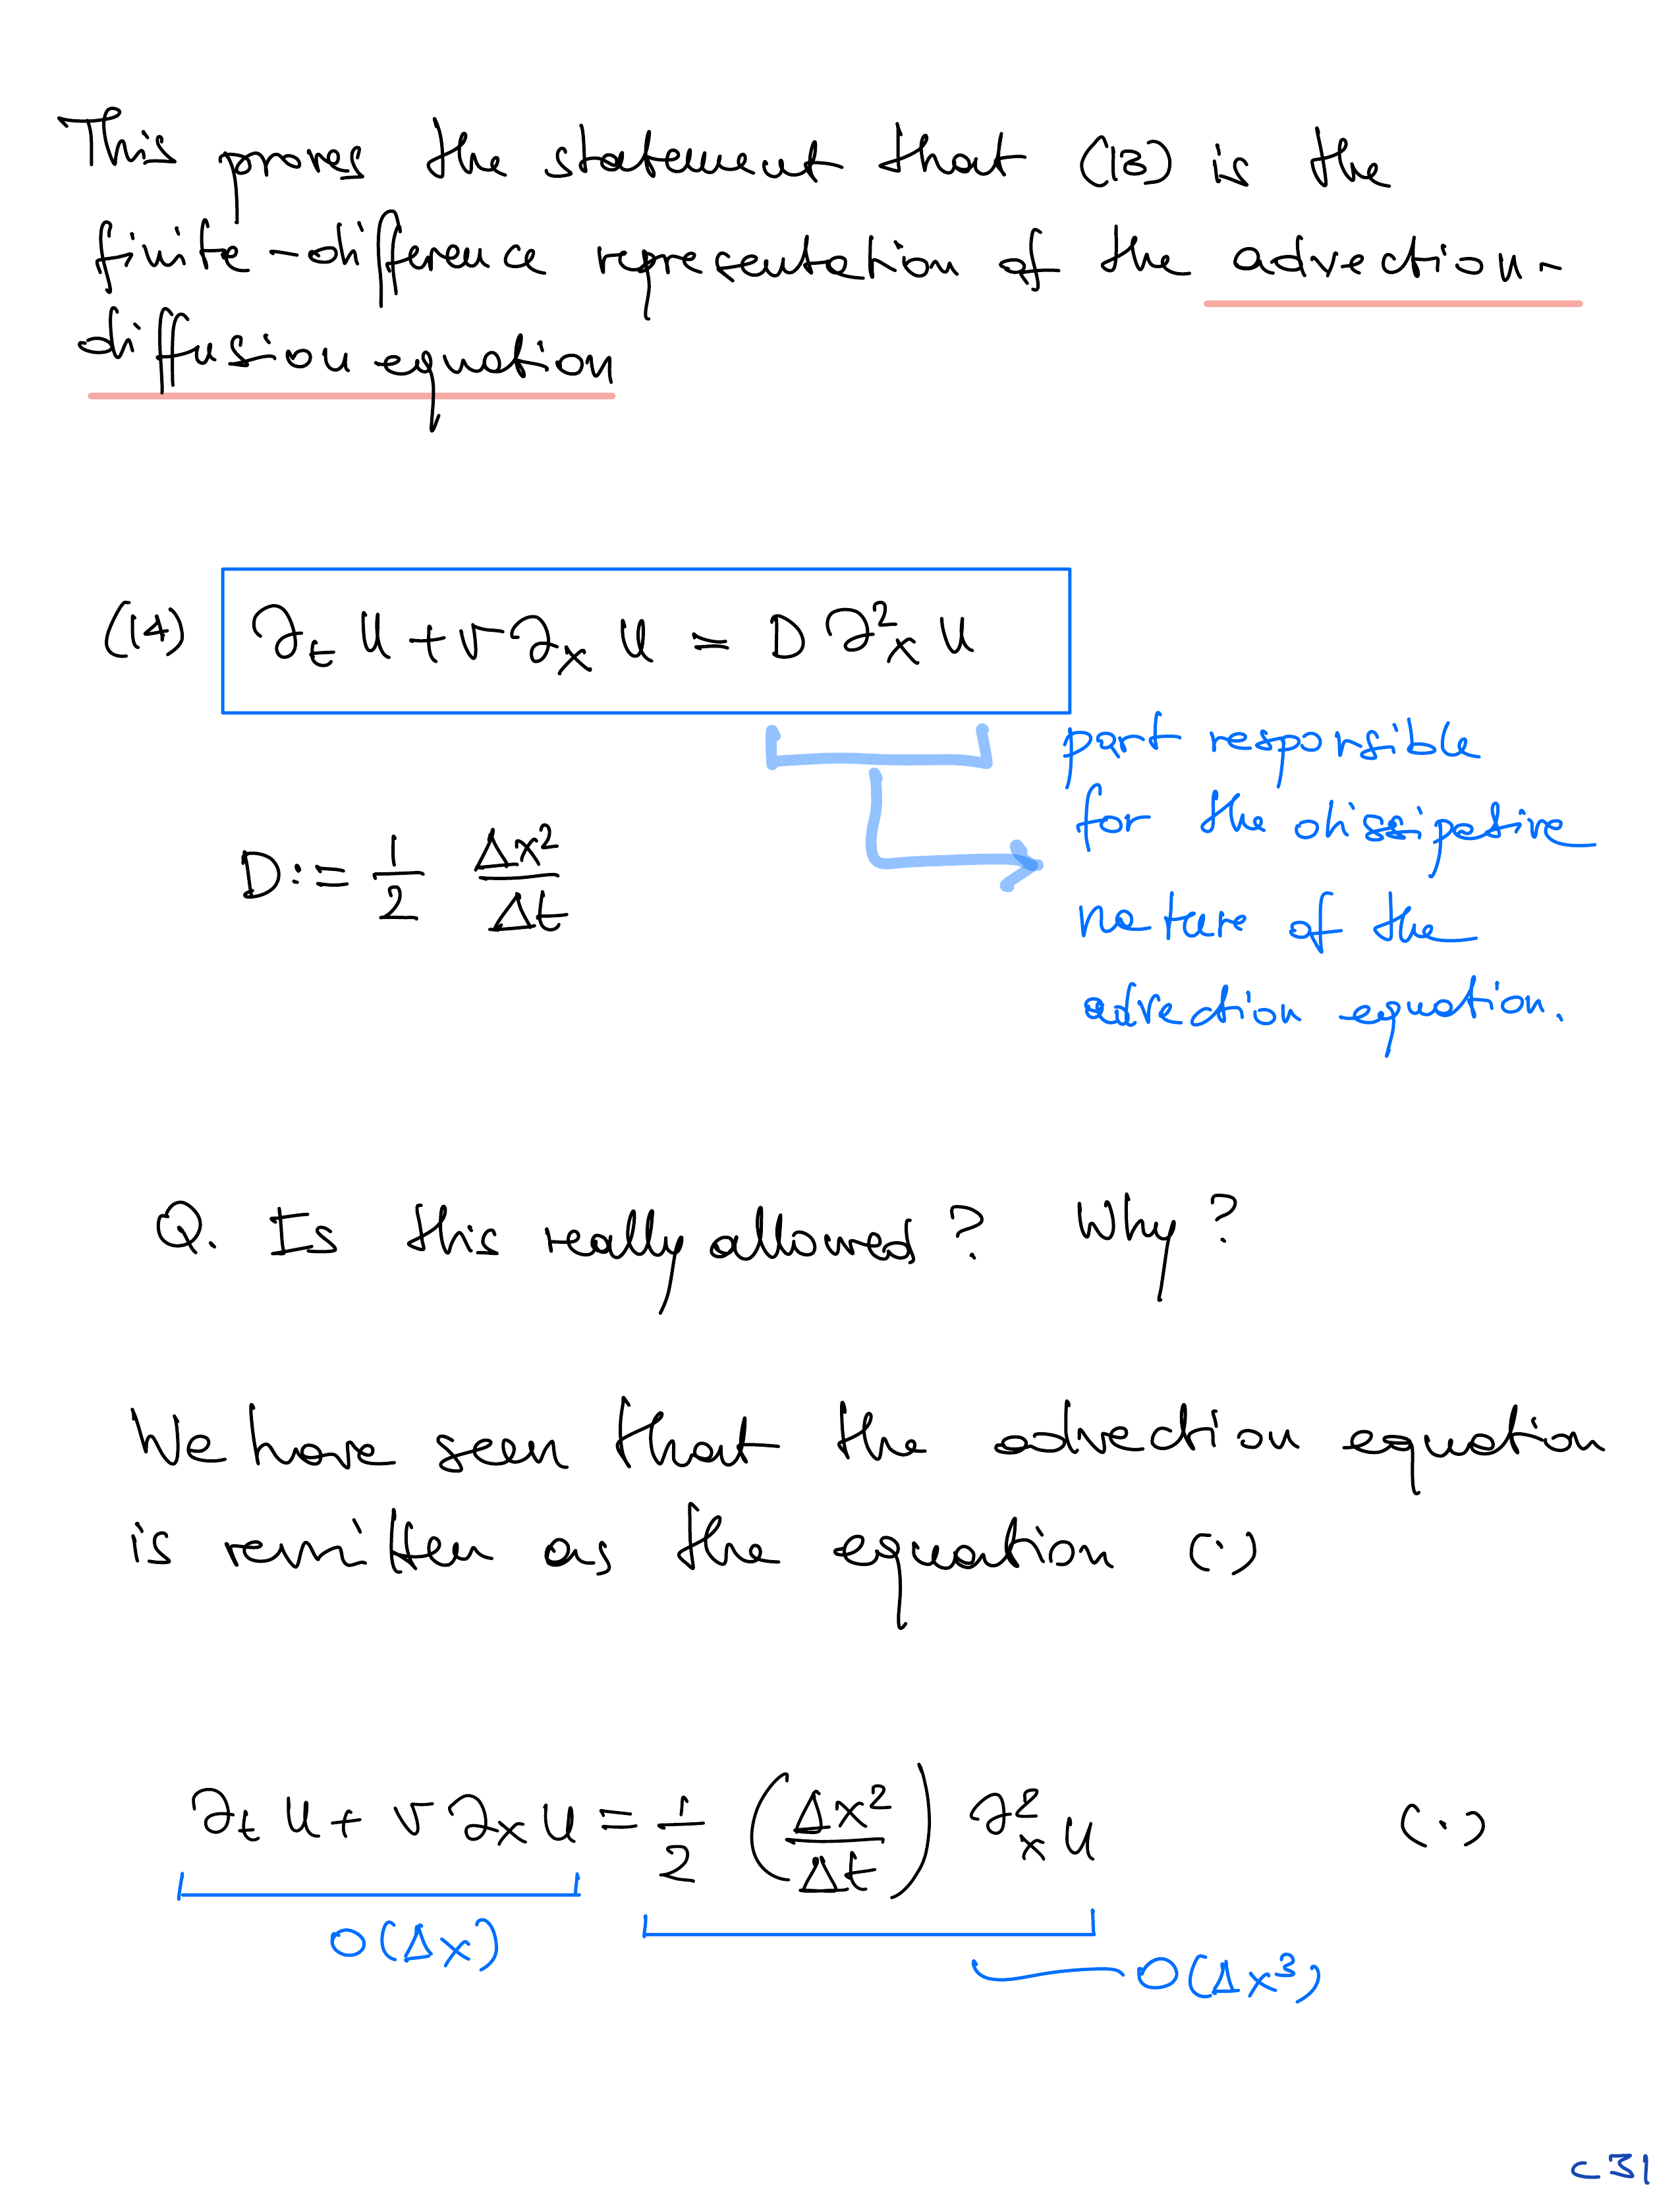 This proves the statement that (13) is the
finite-difference representation of the advection-
diffusion equation
(14) ∂ₜu + v∂ₓu = D∂²ₓu
part responsible
for the dissipative
D := 1/2 Δx²/Δt
nature of the
advection equation.
Q. Is this really allowed? Why?
We have seen that the advection equation
is rewritten as the equation (·)
∂ₜu + v∂ₓu = 1/2 (Δx²/Δt) ∂²ₓu (·)
O(Δx)
O(Δx³)
c31